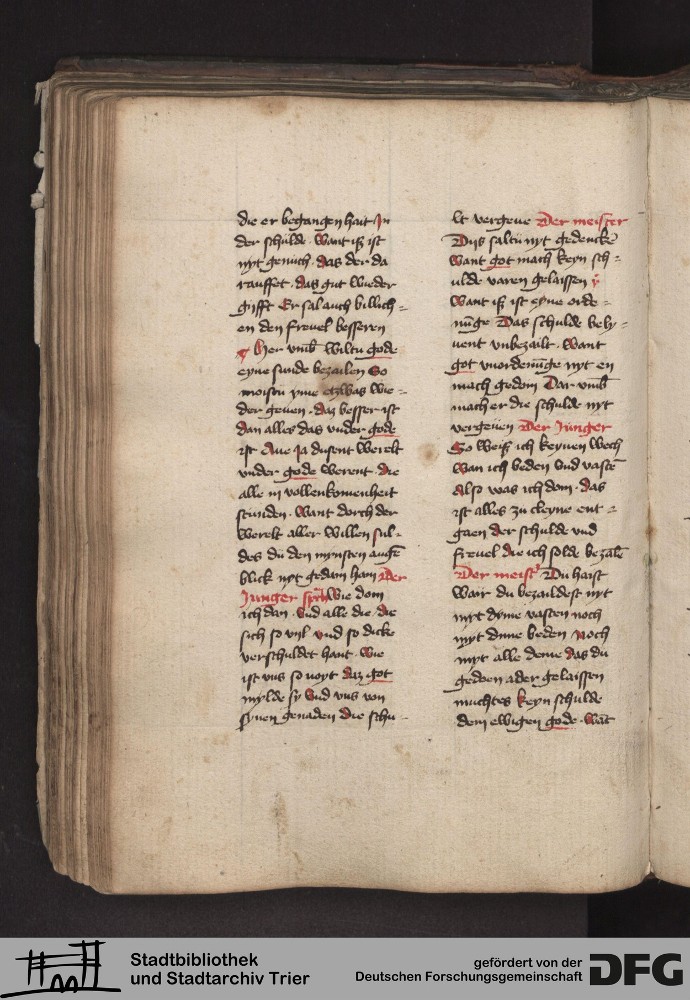 die er begangen hait Jn
der schulde · Want iß ist
nyt genuch · das der da
rauffet · das gut wieder
gifft Er sal auch billich-
en den frevel besseren
Her vmb Wiltu gode
eyne sunde bezailen So
moistu yme etzwas wie-
der geuen · daz besser ist
dan alles das vnder gode
ist Aue Ja dusent werelt
vnder gode werent · die
alle in vollenkomenheit
stunden · Want dorch der
werelt aller willen sul-
des du den mynsten auge
blick nyt gedain han Der
Junger sprach Wie dom
ich dan · Vnd alle die · die
sich so vyl · vnd so dicke
verschuldet hant · Wie
ist vns so noyt daz got
mylde sy Vnd vns von
synen genaden die schu-
lt vergeue Der meister
Dijs saltu nyt gedencke
Want got mach keyn sch-
ulde varen gelaissen
Want iß ist syne orde-
nu̅ge Das schulde bely-
uent vnbezailt · Want
got vnordenu̅ge nyt en
mach gedom Dar vmb
mach er die schulde nyt
vergeuen Der Junger
So weiß ich keynen wech
Wan ich beden vnd vaste̅
Also was ich dom · das
ist alles zu cleyne ent-
gaen der schulde vnd
frevel die ich solde bezale̅
Der meist Du haist
wair du bezaildest nyt
myt dyme vasten noch
myt dime beden Noch
myt alle deme das du
gedoen ader gelaissen
muchtes keyn schulde
dem ewigen gode · Wa̅t
Stadtbibliothek
und Stadtarchiv Trier
gefördert von der
Deutschen Forschungsgemeinschaft
DFG